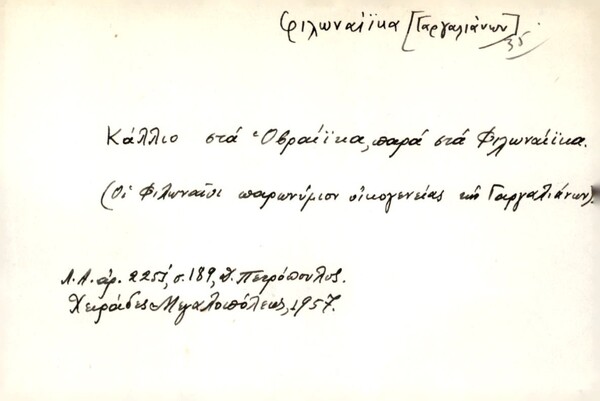 Φιλωναίϊκα [Γαργαλιάνων]
35
Κάλλιο στά Ὀβραίϊκα, παρά στά Φιλωναίϊκα.
(Οἱ Φιλωναῖοι παρωνύμιον οἰκογενείας τῆς Γαργαλιάνων).
Λ.Α. ἀρ. 2251, σ. 189, Δ. Πετρόπουλος.
Χειράδες Μεγαλοπόλεως, 1957.